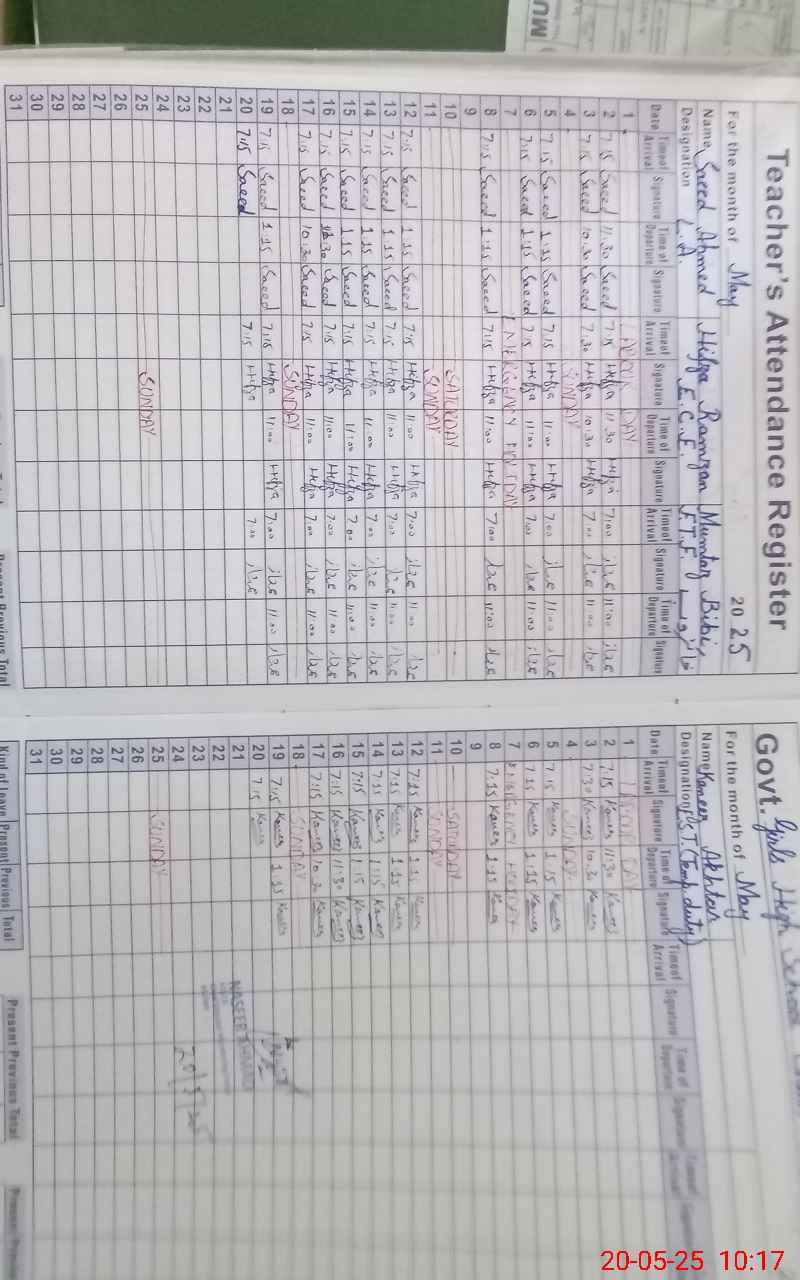 Teacher's Attendance Register
For the month of May 2025
Name Saeed Ahmed Hifza Ramzan Mumtaz Bibi
Designation L.A. E.C.E. F.T.F.
Date Time of Arrival Signature Time of Departure Signature Time of Arrival Signature Time of Departure Signature Time of Arrival Signature Time of Departure Signature
1 LABOUR DAY
2 7:15 Saeed 11:30 Saeed 7:15 Hifza 11:30 Hifza 7:00 11:00
3 7:15 Saeed 10:30 Saeed 7:30 Hifza 10:30 Hifza 7:00 11:00
4 SUNDAY
5 7:15 Saeed 1:15 Saeed 7:15 Hifza 11:00 Hifza 7:00 11:00
6 7:15 Saeed 1:15 Saeed 7:15 Hifza 11:00 Hifza 7:00 11:00
7 EMERGENCY HOLIDAY
8 7:15 Saeed 1:15 Saeed 7:15 Hifza 11:00 Hifza 7:00 11:00
9
10 SATURDAY
11 SUNDAY
12 7:15 Saeed 1:15 Saeed 7:15 Hifza 11:00 Hifza 7:00 11:00
13 7:15 Saeed 1:15 Saeed 7:15 Hifza 11:00 Hifza 7:00 11:00
14 7:15 Saeed 1:15 Saeed 7:15 Hifza 11:00 Hifza 7:00 11:00
15 7:15 Saeed 1:15 Saeed 7:15 Hifza 11:00 Hifza 7:00 11:00
16 7:15 Saeed Saeed 7:15 Hifza 11:00 Hifza 7:00 11:00
17 7:15 Saeed 10:30 Saeed 7:15 Hifza 11:00 Hifza 7:00 11:00
18 SUNDAY
19 7:15 Saeed 1:15 Saeed 7:15 Hifza 11:00 Hifza 7:00 11:00
20 7:15 Saeed 7:15 Hifza 7:00
21
22
23
24
25 SUNDAY
26
27
28
29
30
31
Present Previous Total
Govt. Girls High School
For the month of May
Name Kaneez Akhtar
Designation (Temp duty)
Date Time of Arrival Signature Time of Departure Signature Time of Arrival Signature Time of Departure Signature
1 LABOUR DAY
2 7:15 Kaneez 11:30 Kaneez
3 7:30 Kaneez 10:30 Kaneez
4 SUNDAY
5 7:15 Kaneez 1:15 Kaneez
6 7:15 Kaneez 1:15 Kaneez
7 EMERGENCY HOLIDAY
8 7:15 Kaneez 1:15 Kaneez
9
10 SATURDAY
11 SUNDAY
12 7:15 Kaneez 1:15 Kaneez
13 7:15 Kaneez 1:15 Kaneez
14 7:15 Kaneez 1:15 Kaneez
15 7:15 Kaneez 1:15 Kaneez
16 7:15 Kaneez 11:30 Kaneez
17 7:15 Kaneez 10:30 Kaneez
18 SUNDAY
19 7:15 Kaneez 1:15 Kaneez
20 7:15 Kaneez
21 NASEER
22
23 20/5/25
24
25 SUNDAY
26
27
28
29
30
31
Kind of Leave Present Previous Total Present Previous Total
20-05-25 10:17